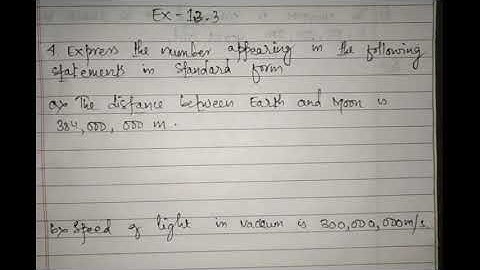 Ex - 13.3
4. Express the number appearing in the following
statements in Standard form
a> The distance between Earth and Moon is
384,000,000 m.
b> Speed of light in vacuum is 300,000,000m/s